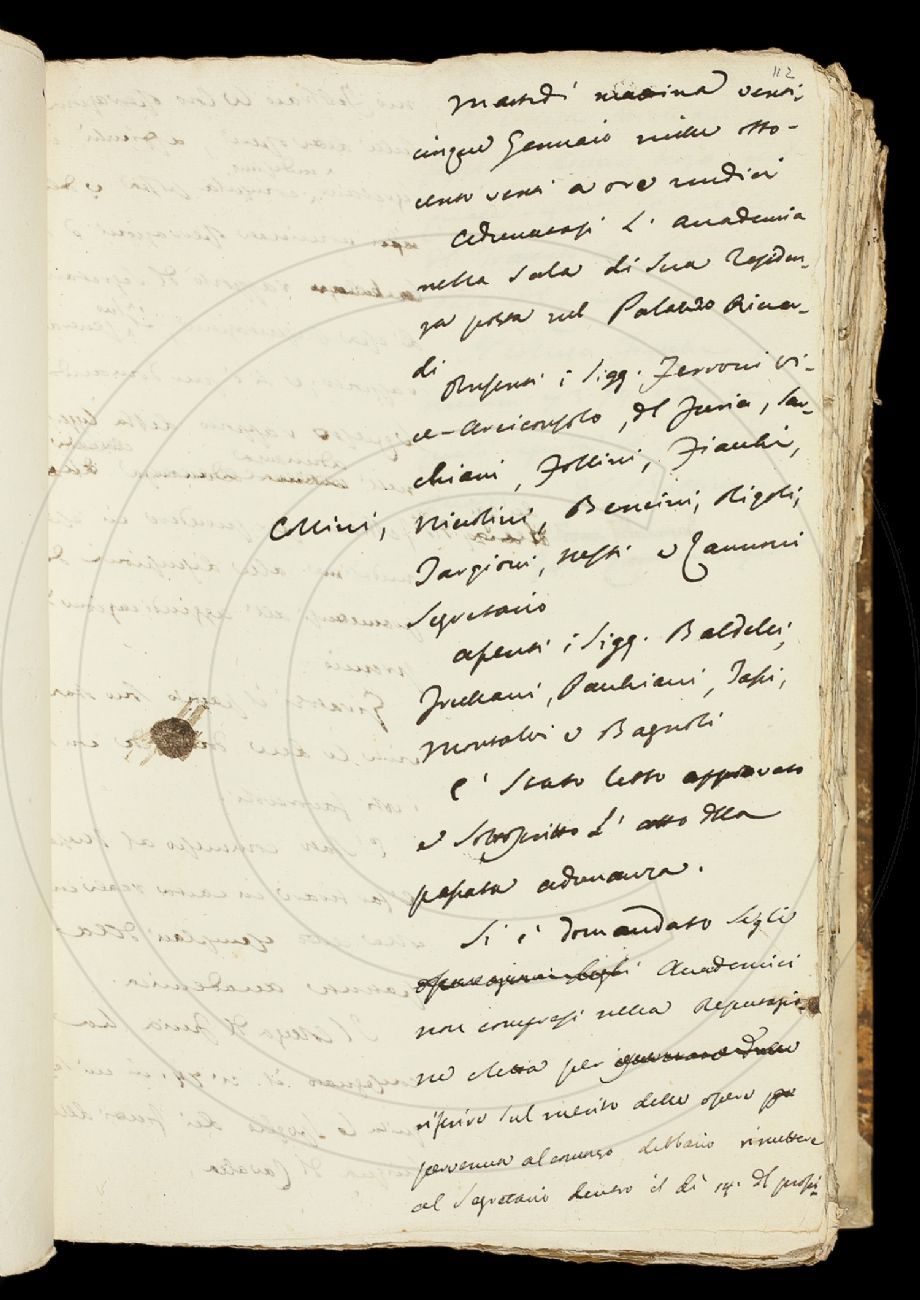 112
Martedì mattina venti-
cinque Gennaio mille otto-
cento venti a ore undici
Adunatasi l'Accademia
nella Sala di sua Residen-
za posta nel Palazzo Riccar-
di
Presenti i Sigg. Ferroni Vi-
ce-Arciconsolo, del Furia, Sar-
chiani, Follini, Fiacchi,
Collini, Niccolini, Bencini, Rigoli,
Targioni, Nesti e Zannoni
Segretario
assenti i Sigg. Baldelli,
Frullani, Pauchiani, Tassi,
Montalvi e Bagnoli
E' stato letto approvato
e sottoscritto l'atto della
passata adunanza.
Si è domandato se gli
Accademici
non compresi nella Deputazio-
ne eletta per
riferire sul merito delle opere
pervenute al concorso debbano rimettere
al Segretario dentro il dì 14. del prossi-